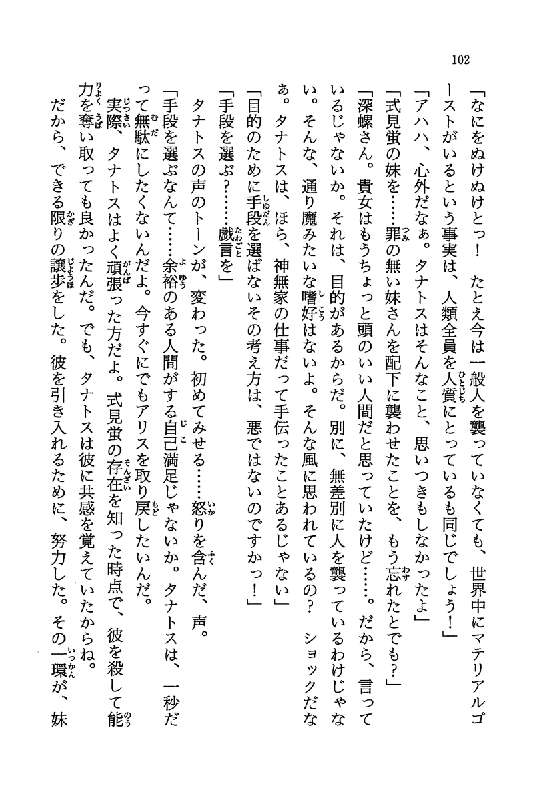 102
「なにをぬけぬけとっ！　たとえ今は一般人を襲っていなくても、世界中にマテリアルゴ
ーストがいるという事実は、人類全員を人質にとっているも同じでしょう！」
「アハハ、心外だなぁ。タナトスはそんなこと、思いつきもしなかったよ」
「式見蛍の妹を……罪の無い妹さんを配下に襲わせたことを、もう忘れたとでも？」
「深螺さん。貴女はもうちょっと頭のいい人間だと思っていたけど……。だから、言って
いるじゃないか。それは、目的があるからだ。別に、無差別に人を襲っているわけじゃな
い。そんな、通り魔みたいな嗜好はないよ。そんな風に思われているの？　ショックだな
ぁ。タナトスは、ほら、神無家の仕事だって手伝ったことあるじゃない」
「目的のために手段を選ばないその考え方は、悪ではないのですかっ！」
「手段を選ぶ？……戯言を」
　タナトスの声のトーンが、変わった。初めてみせる……怒りを含んだ、声。
「手段を選ぶなんて……余裕のある人間がする自己満足じゃないか。タナトスは、一秒だ
って無駄にしたくないんだよ。今すぐにでもアリスを取り戻したいんだ。
　実際、タナトスはよく頑張った方だよ。式見蛍の存在を知った時点で、彼を殺して能
力を奪い取っても良かったんだ。でも、タナトスは彼に共感を覚えていたからね。
だから、できる限りの譲歩をした。彼を引き入れるために、努力した。その一環が、妹